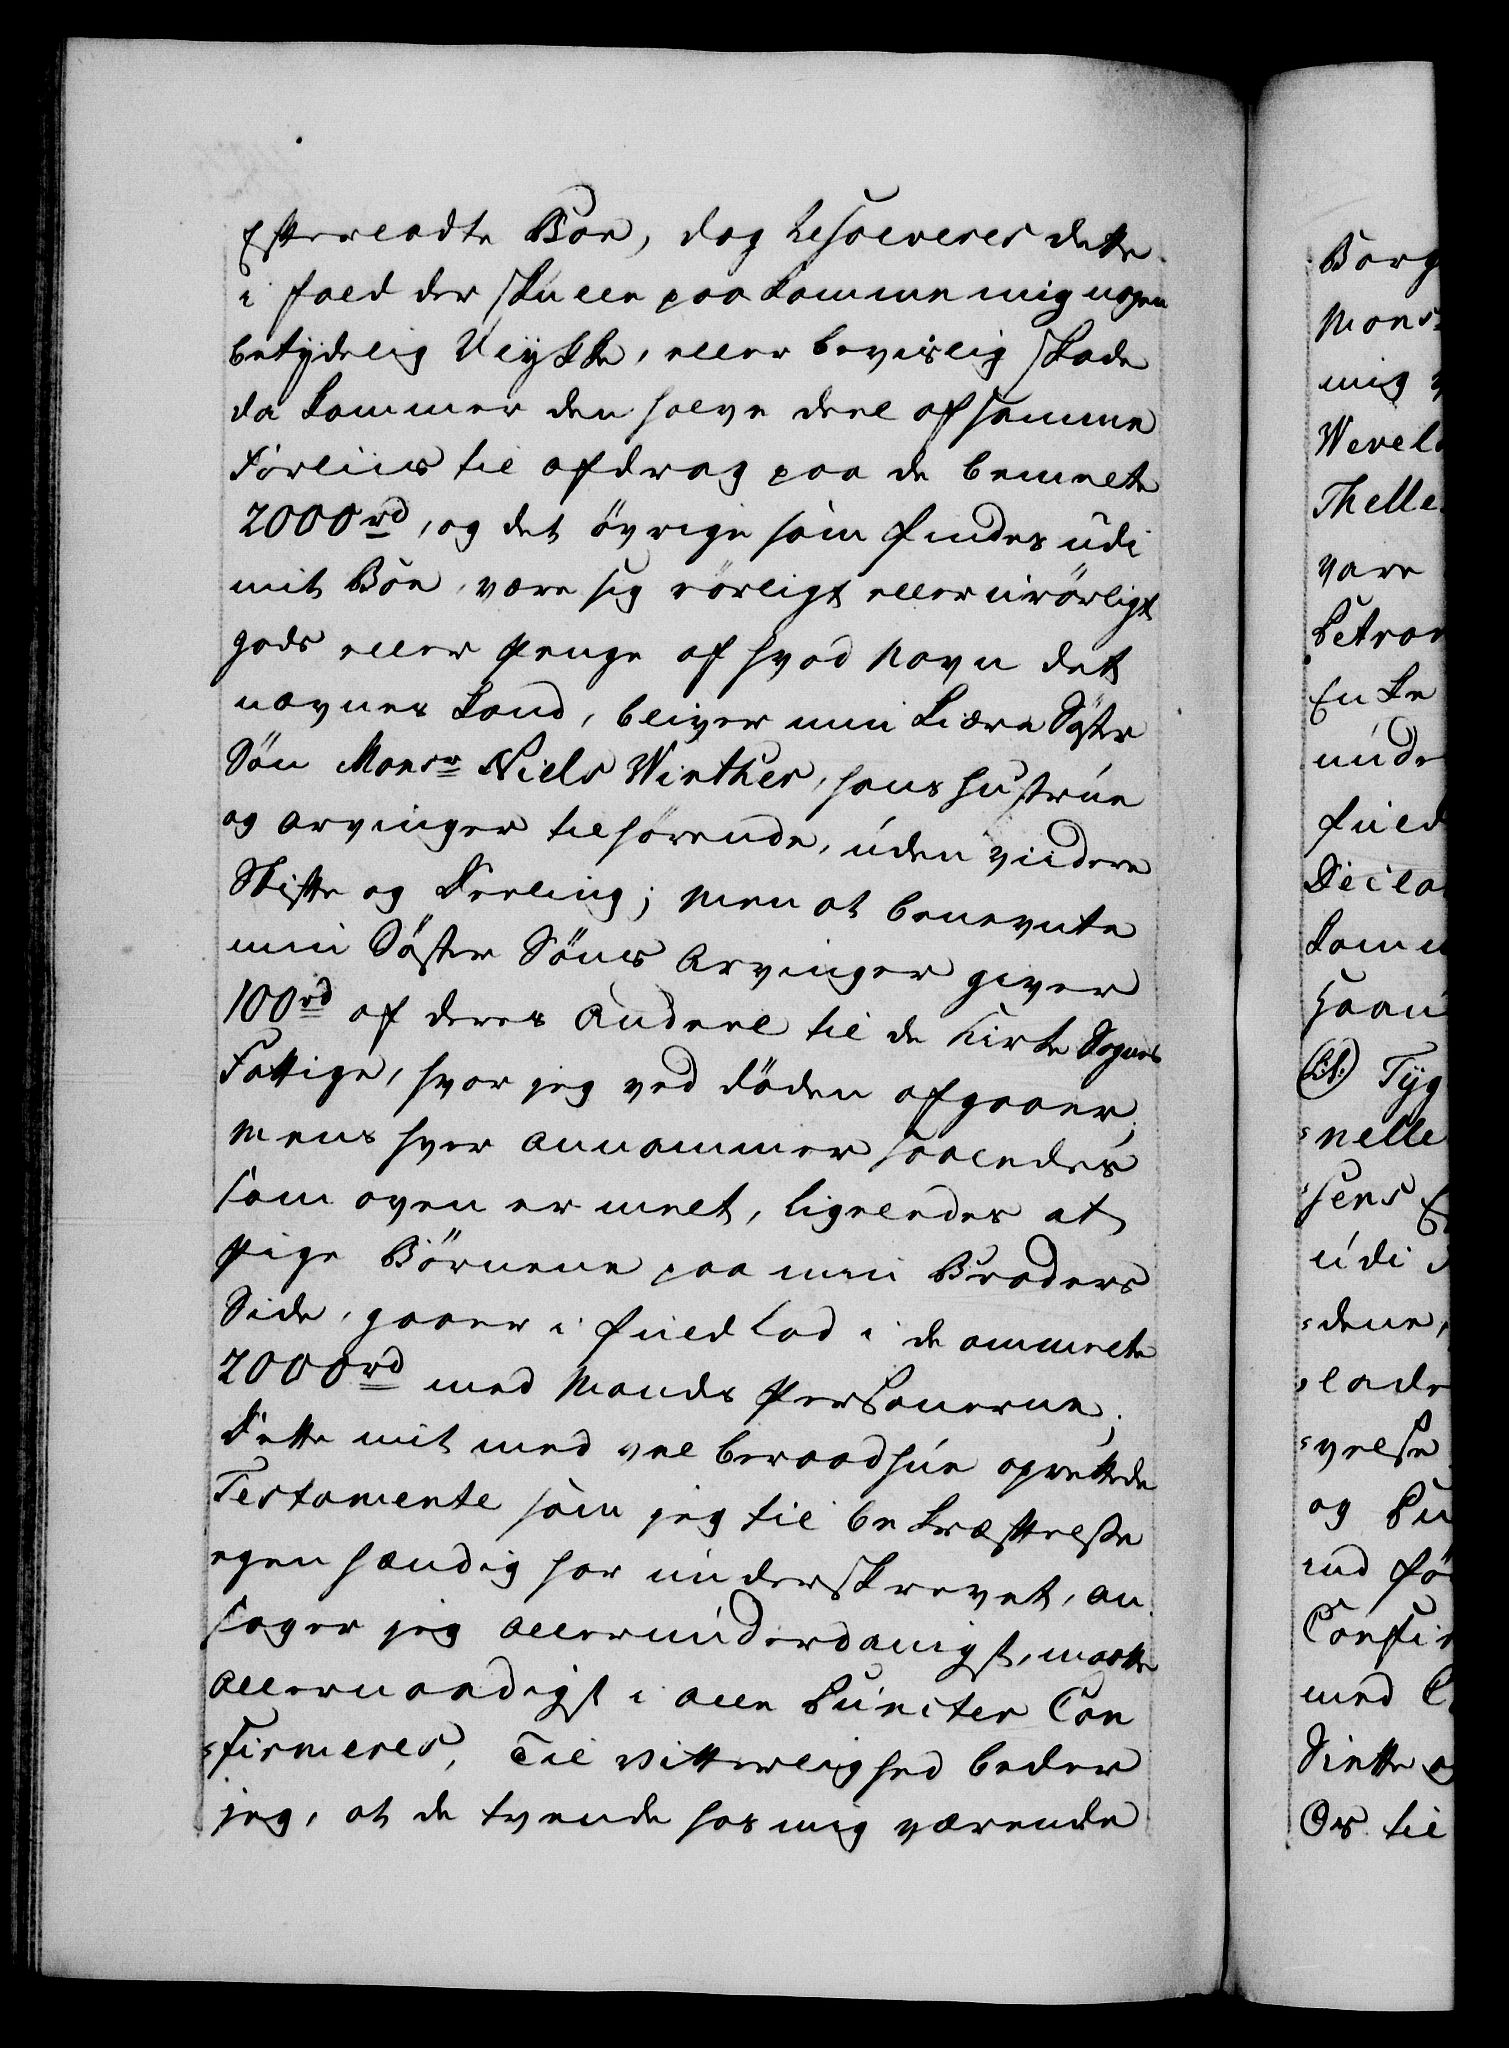 Efterladte Boe, dog Resolveres dette
i fald der skulle paa komme mig nogen
betydelig Ulykke, eller bevislig skade
da kommer den halve deel af samme
Forliis til afdrag paa de bemelte
2000 rd, og det øvrige som findes udi
mit Boe, være sig rørligt eller urørligt
gods eller Penge af hvad Navn det
nævnes kand, bliver min kiære Søster
Søn Monsr Niels Winther, hans Hustrue
og Arvinger tilhørende, uden viidere
Skifte og Deeling; men at benevnte
min Søster Søns Arvinger giver
100 rd af deres Andeel til de Kirke Sogns
Fattige, hvor jeg ved Døden afgaaer;
mens hver annammer saaledes
som oven er melt, ligeledes at
Pige Børnene paa min Broders
Side, gaaer i fuld Lod i de ommelte
2000 rd med Mands Personerne;
Dette mit med vel beraad hue oprettede
Testamente som jeg til bekræftelse
egenhændig har underskrevet, an
søger jeg allerunderdanigst, maatte
allernaadigst i alle Puncter Con
firmeres, Til Vitterlighed beder
jeg, at de tvende hos mig værende
Borg
Mons
mig
Werel
Thelle
være
Petron
Enke
unde
fuld
Decla
komm
haan
(LS.) Tyg
nelle
sens
udi
dene,
lade
velse
og Pu
ind fø
Confir
med
Siette
Os til